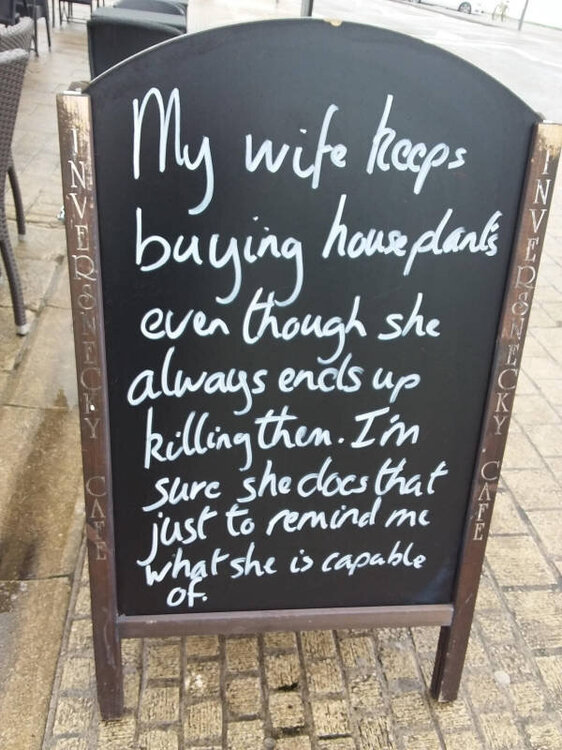 My wife keeps
buying houseplants
even though she
always ends up
killing them. I'm
sure she does that
just to remind me
what she is capable
of.
INVERSNECKY CAFE
INVERSNECKY CAFE